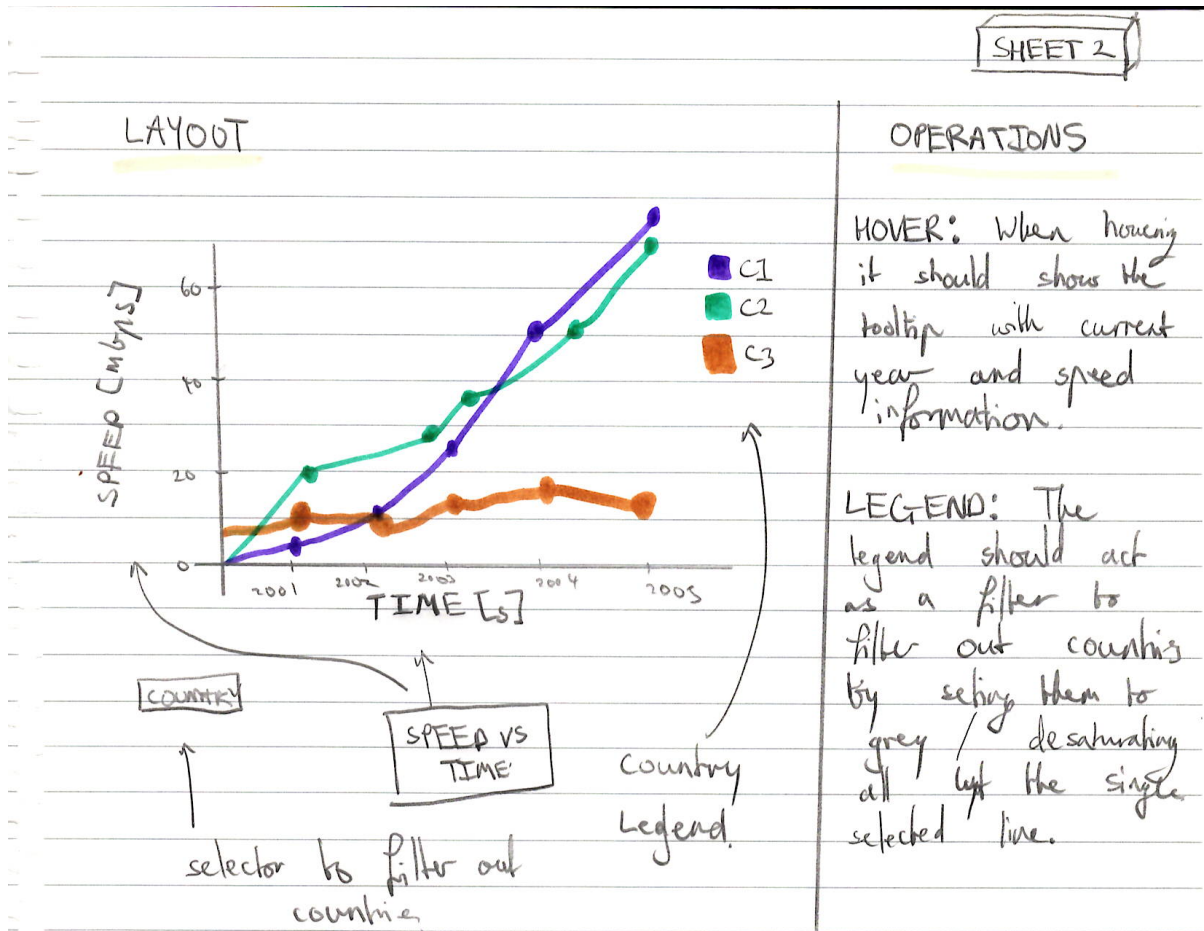 SHEET 2
LAYOUT
SPEED [mbps]
60
40
20
0
2001 2002 2003 2004 2005
TIME [s]
C1
C2
C3
COUNTRY
SPEED VS
TIME
Country
Legend.
selector to filter out
countries
OPERATIONS
HOVER: When hovering
it should show the
tooltip with current
year and speed
information.
LEGEND: The
legend should act
as a filter to
filter out countries
by seting them to
grey / desaturating
all but the single
selected line.